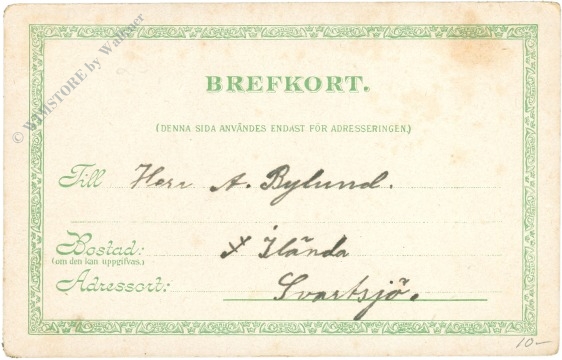 BREFKORT.
(DENNA SIDA ANVÄNDES ENDAST FÖR ADRESSERINGEN.)
Till Herr A. Bylund.
Bostad: x Ilända
(om den kan uppgifvas.)
Adressort: Svartsjö.
10–
© WIMSTORE by Wallner